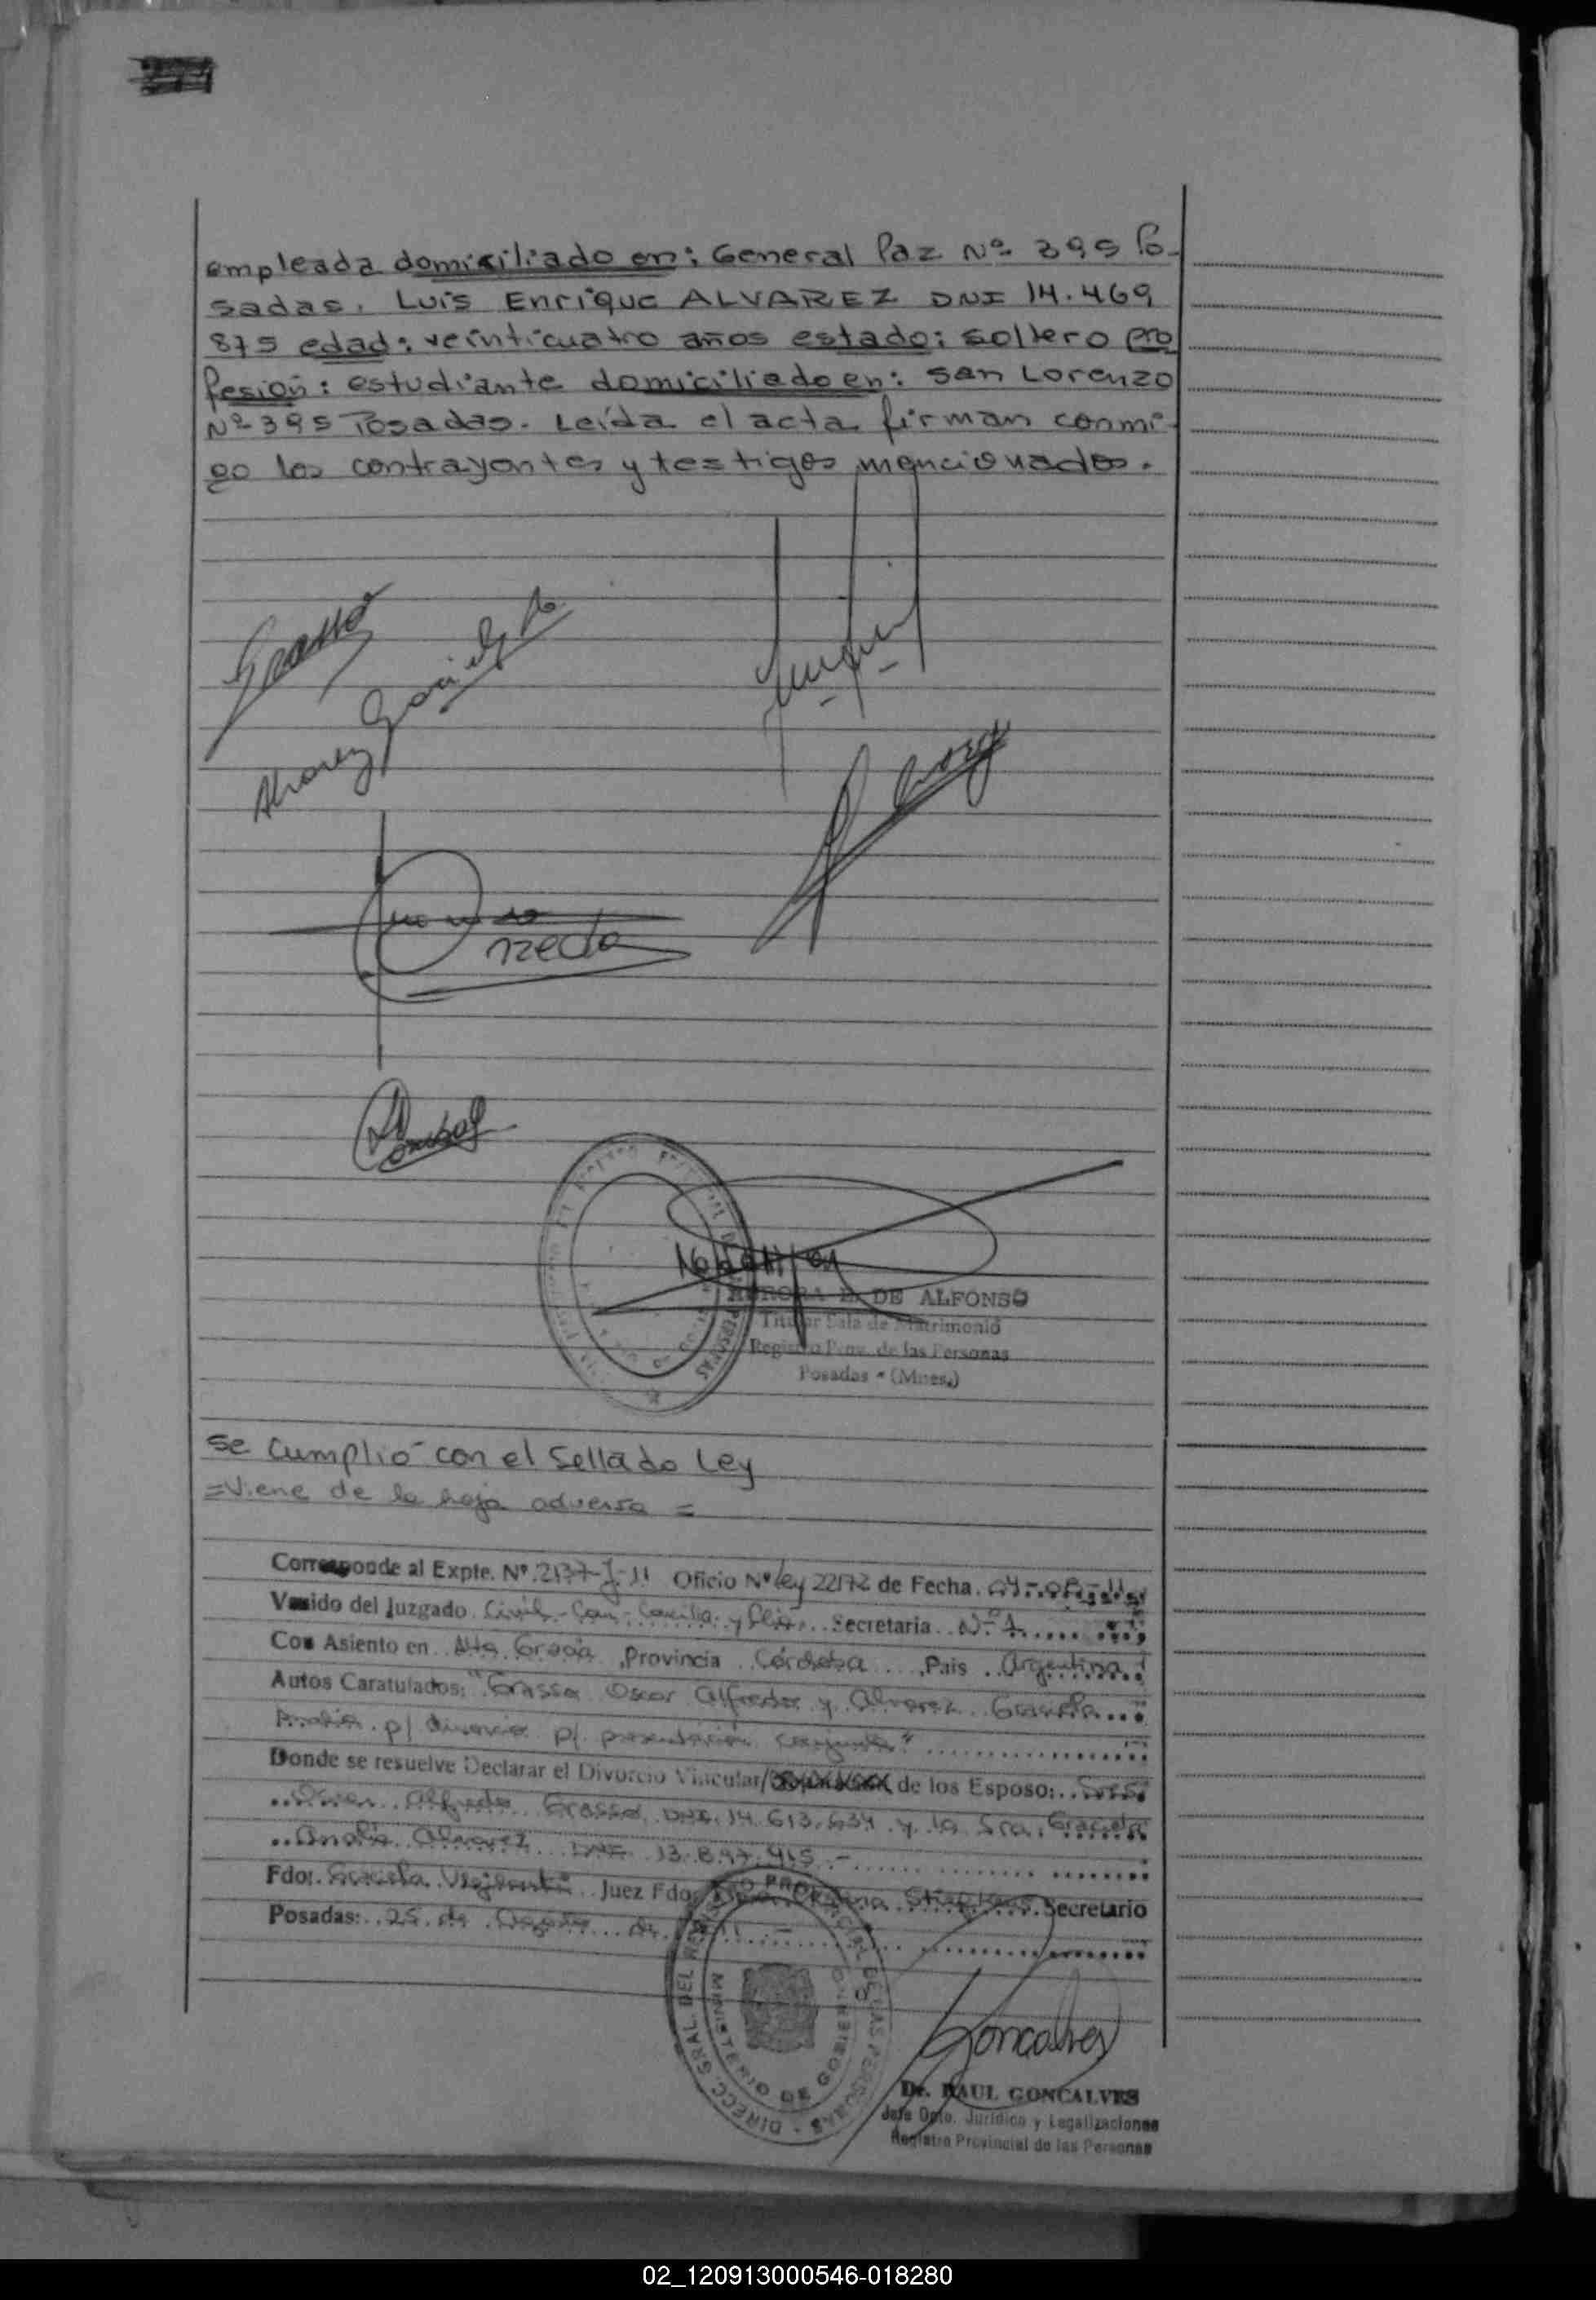 empleada domisiliado en: General Paz Nº 395 Po-
sadas. Luis Enrique ALVAREZ DNI 14.469
875 edad: veinticuatro años estado: soltero pro
fesión: estudiante domiciliado en: San Lorenzo
Nº 395 Posadas. Leída el acta firman conmi-
go los contrayentes y testigos mencionados.
Grasso
Alvarez Graciela A
AURORA E. DE ALFONSO
Titular Sala de Matrimonio
Registro Prov. de las Personas
Posadas - (Mnes.)
Se cumplió con el sellado Ley
=Viene de la hoja adversa=
Corresponde al Expte. Nº 2137-J-11 Oficio Nº Ley 22172 de Fecha 04-08-11
Venido del Juzgado Civil-Com-Concilia. y Flia. Secretaria Nº 1
Con Asiento en Alta Gracia, Provincia Córdoba, Pais Argentina
Autos Caratulados: "Grasso Oscar Alfredo y Alvarez Graciela
Analia p/ divorcio p/ presentación conjunta"
Donde se resuelve Declarar el Divorcio Vincular/ de los Esposo: Sres.
Oscar Alfredo Grasso, DNI. 14.613.634 y la Sra. Graciela
Analia Alvarez DNI 13.897.415.-
Fdo: Graciela Vigilanti Juez Fdo Secretario
Posadas: 25 de Agosto de 11.-
DIRECC. GRAL. DEL REGISTRO PROVINCIAL DE LAS PERSONAS
MINISTERIO DE GOBIERNO
Goncalves
Dr. RAUL GONCALVES
Jefe Dpto. Jurídico y Legalizaciones
Registro Provincial de las Personas
02_120913000546-018280